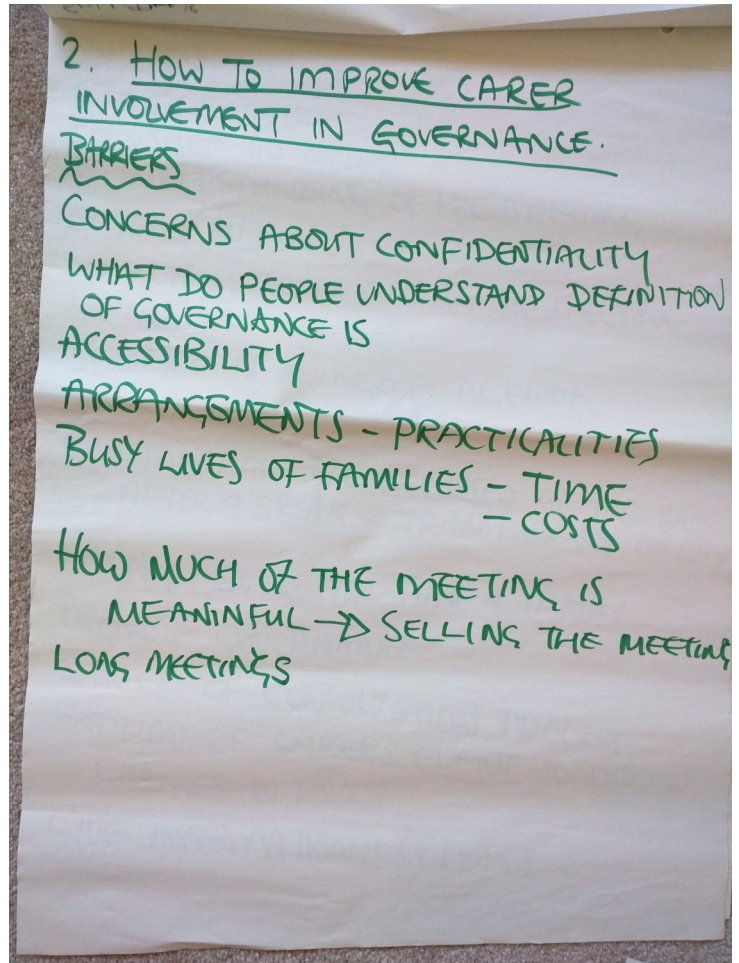 2. HOW TO IMPROVE CARER
INVOLVEMENT IN GOVERNANCE.
BARRIERS
CONCERNS ABOUT CONFIDENTIALITY
WHAT DO PEOPLE UNDERSTAND DEFINITION
OF GOVERNANCE IS
ACCESSIBILITY
ARRANGEMENTS - PRACTICALITIES
BUSY LIVES OF FAMILIES - TIME
- COSTS
HOW MUCH OF THE MEETING IS
MEANINFUL → SELLING THE MEETING
LONG MEETINGS